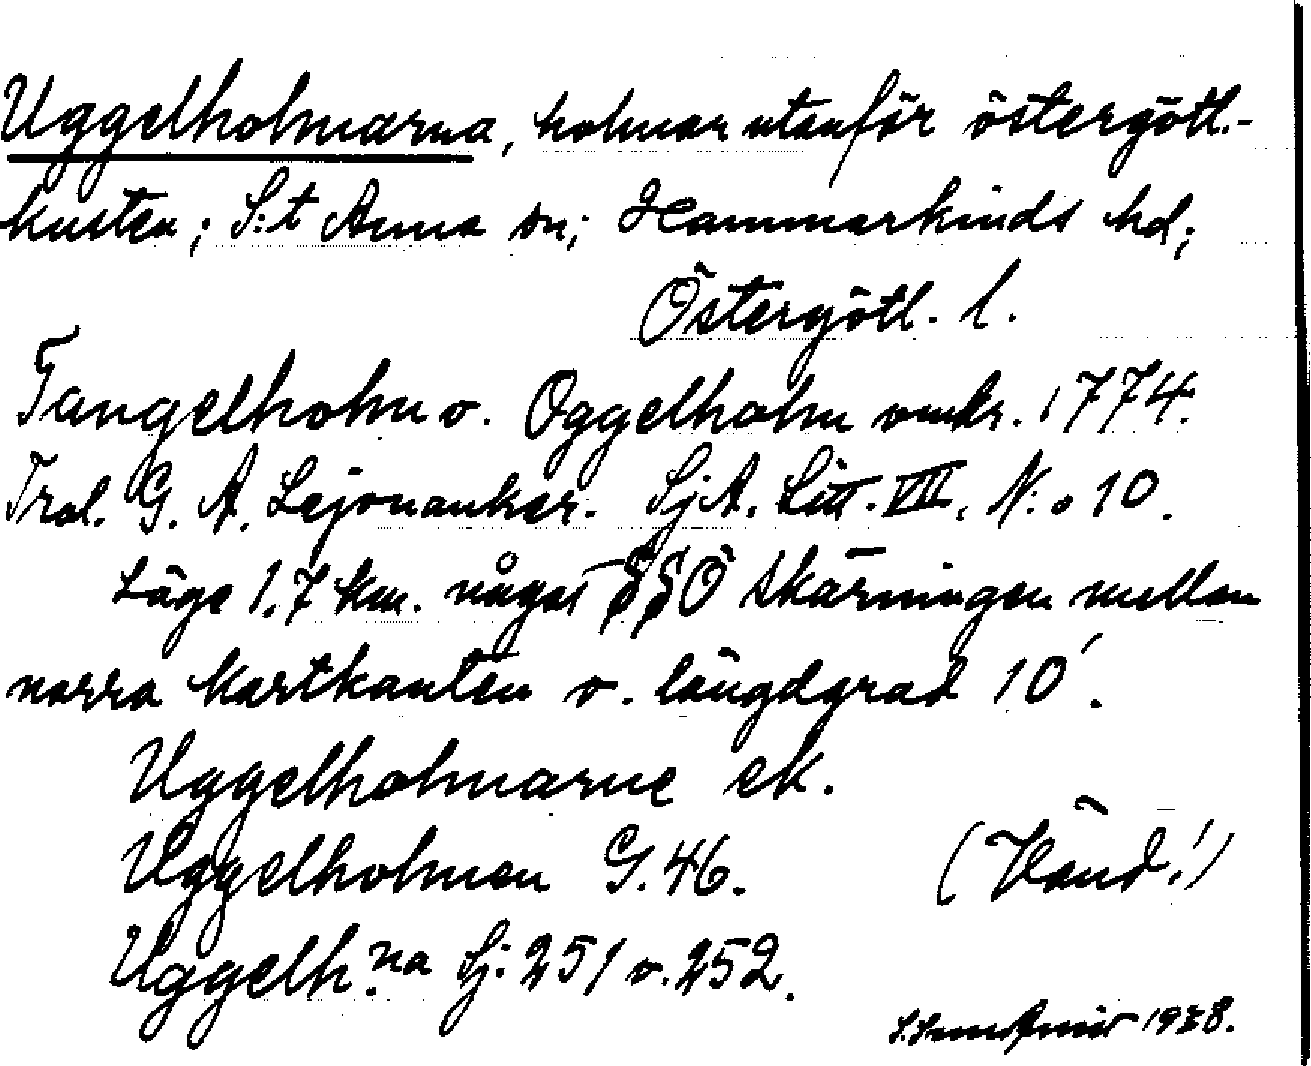 Uggelholmarna, holmar utanför östergötl.-
kusten; S:t Anna sn; Hammarkinds hd;
Östergötl. l.
Tangelholm o. Oggelholm omkr. 1774.
Trol. G. A. Lejonanker. SjA. Litt. VIII, N:o 10.
Läge 1,7 km. något SSO skärningen mellan
norra kartkanten o. längdgrad 10′.
Uggelholmarne ek.
Uggelholmen G. 46.
(Vänd!)
Uggelh:na Sj. 251 o. 252.
1928.